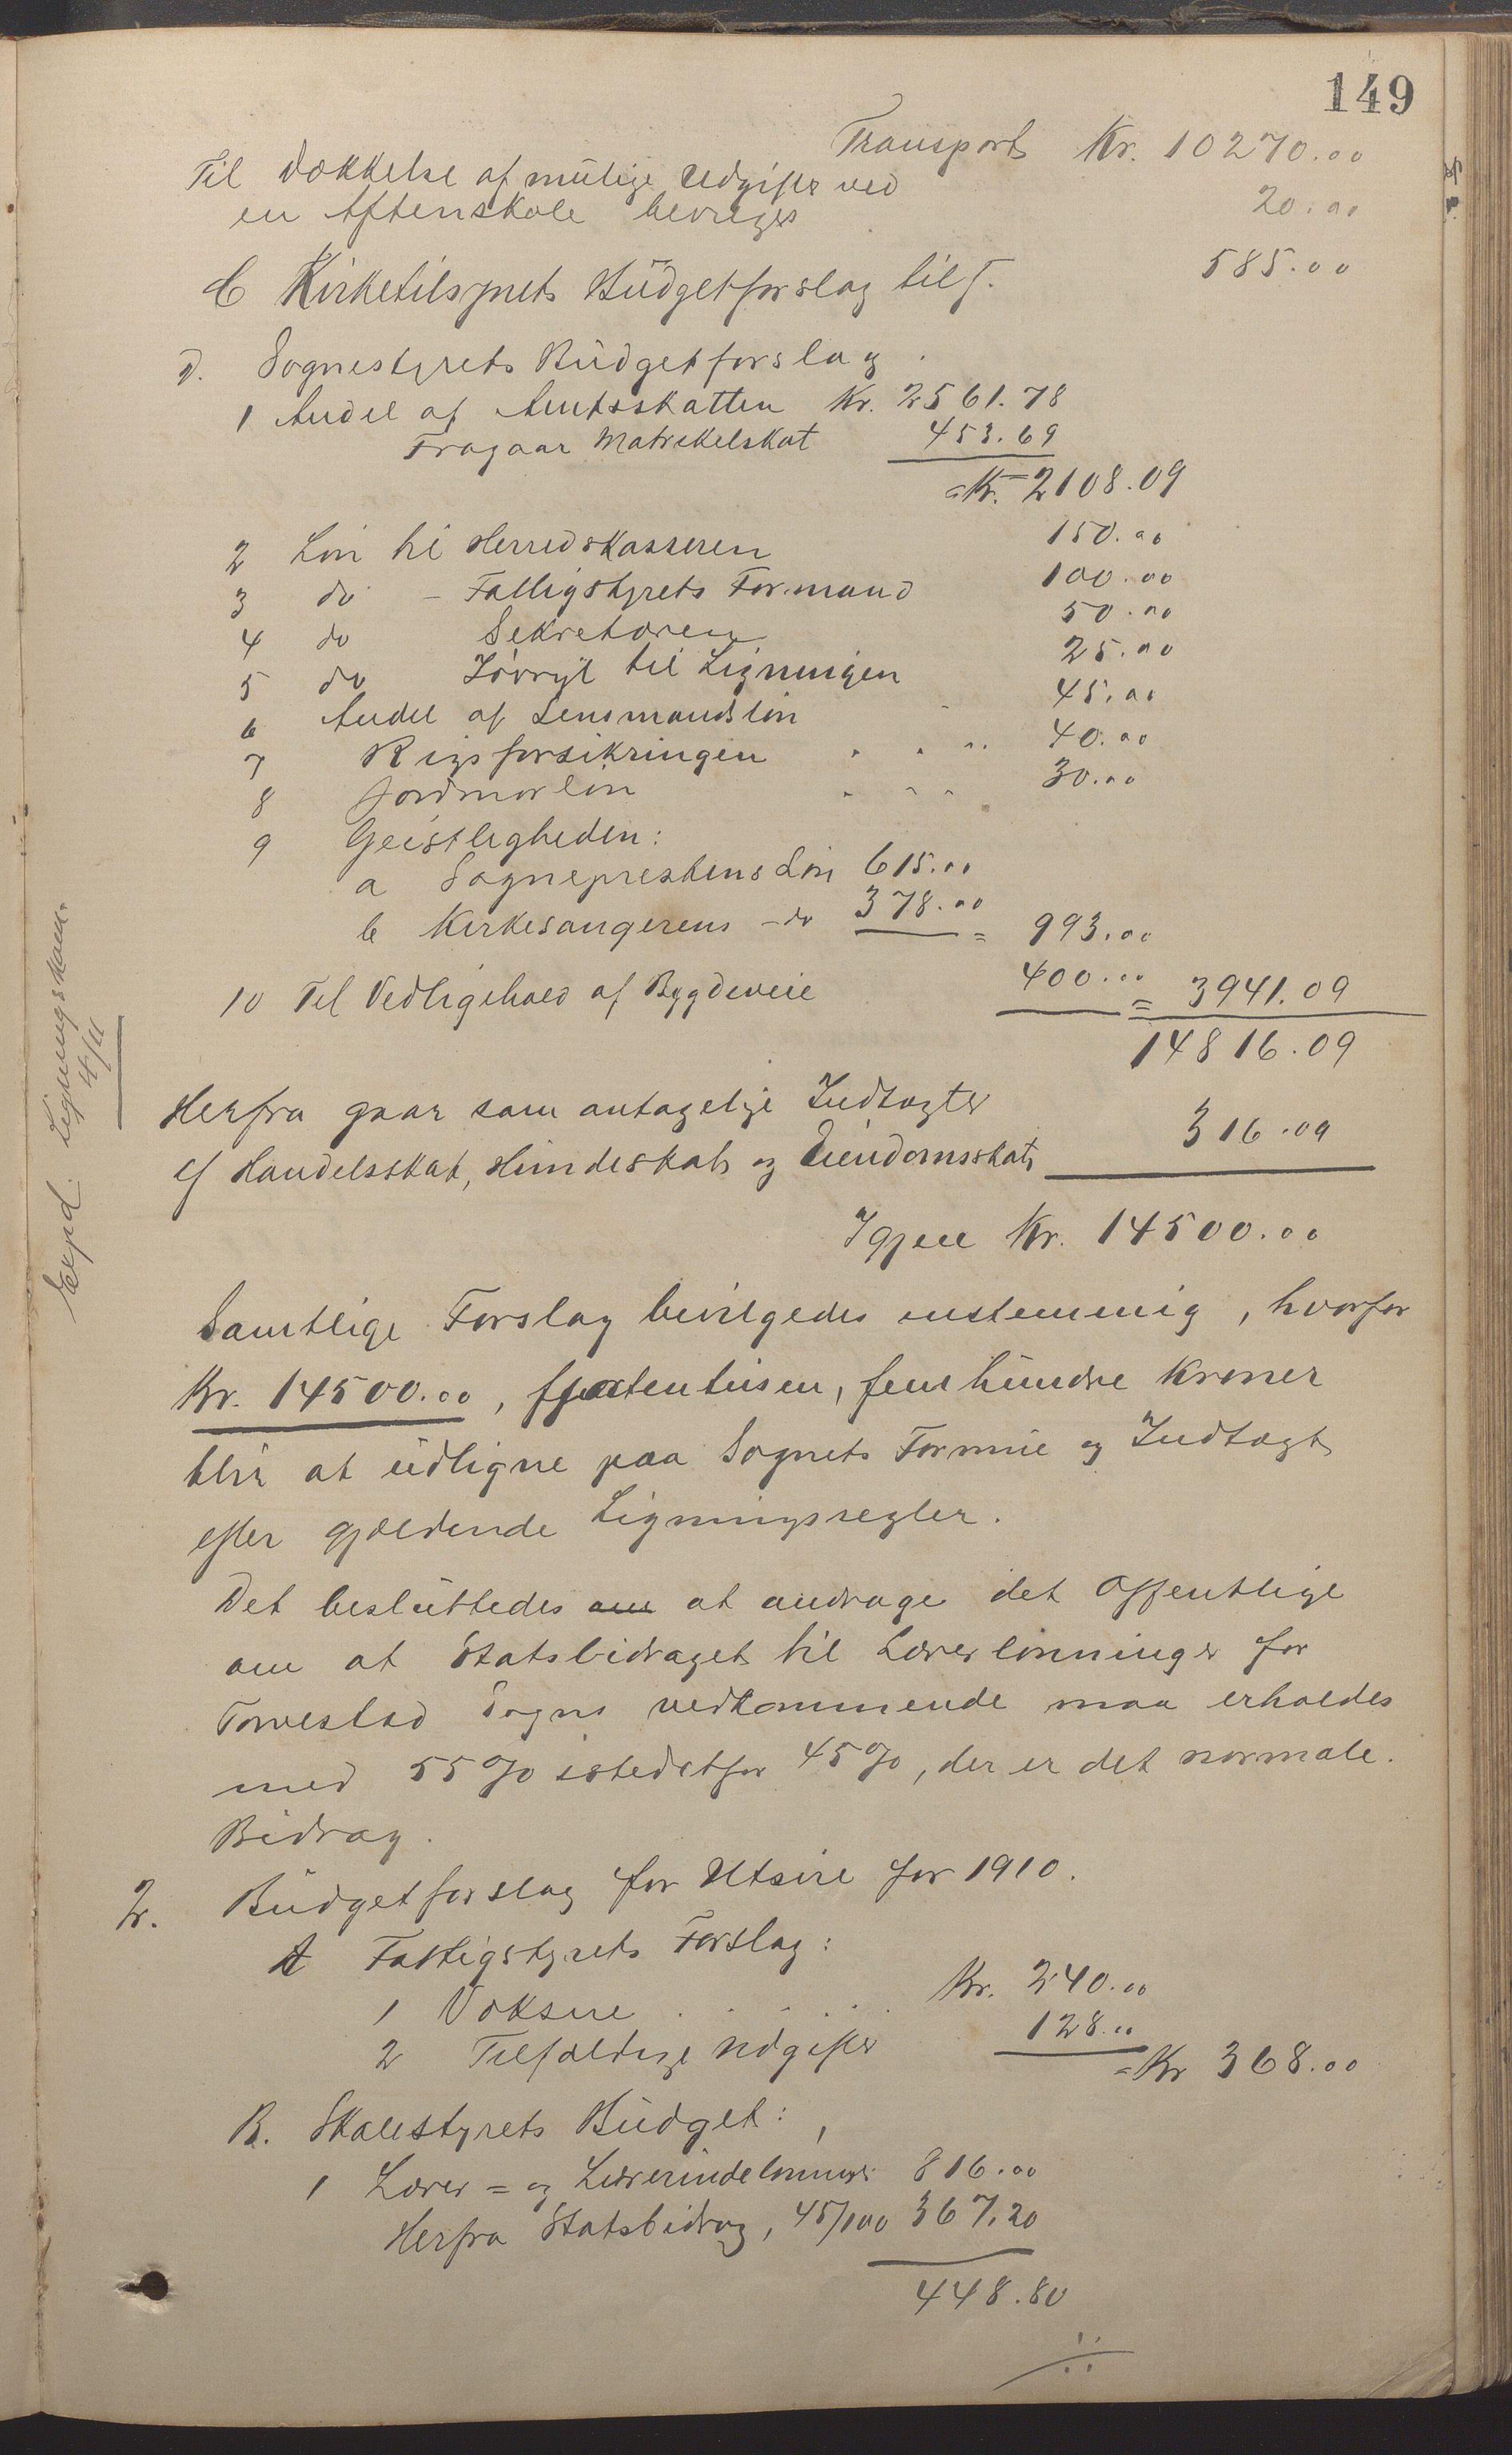 149
Transport Kr. 10270.00
Til Dækkelse af mulige Udgifter ved
en Aftenskole bevilges 20.00
C Kirketilsynets Budgetforslag tils. 585.00
D. Sognestyrets Budgetforslag.
1 Andel af Amtsskatten Kr. 2561.78
Fragaar Matrikelskat 453.69
= Kr. 2108.09
2 Løn til Herredskasseren 150.00
3 do - Fattigstyrets Formand 100.00
4 do Sekretæren 50.00
5 do Tilsyn til Ligningen 25.00
6 Andel af Lensmandsløn 45.00
7 Rigsforsikringen 40.00
8 Jordmorløn 30.00
9 Geistligheden:
a Sogneprestens Løn 615.00
b Kirkesangerens - do 378.00 = 993.00
10 Til Vedligehold af Bygdeveie 400.00 = 3941.09
14816.09
Herfra gaar som antagelige Indtægter
af Handelsskat, Hundeskat og Eiendomsskat 316.09
Igjen Kr. 14500.00
Samtlige Forslag bevilgedes enstemmig, hvorfor
Kr. 14500.00, fjortentusen, femhundre Kroner
blir at udligne paa Sognets Formue og Indtægt
efter gjældende Ligningsregler.
Det besluttedes om at andrage det Offentlige
om at Statsbidraget til Lærerlønninger for
Torvestad Sogns vedkommende maa erholdes
med 55% istedetfor 45%, der er det normale.
Bidrag.
2. Budgetforslag for Utsire for 1910.
A Fattigstyrets Forslag:
1 Voksne . . . . . Kr. 240.00
2 Tilfældige Udgifter 128.00
= Kr 368.00
B. Skolestyrets Budget:
1 Lærer= og Lærerindelønninger 816.00
Herfra Statsbidrag, 45/100 367.20
448.80
Exped. Ligningskom.
4/11